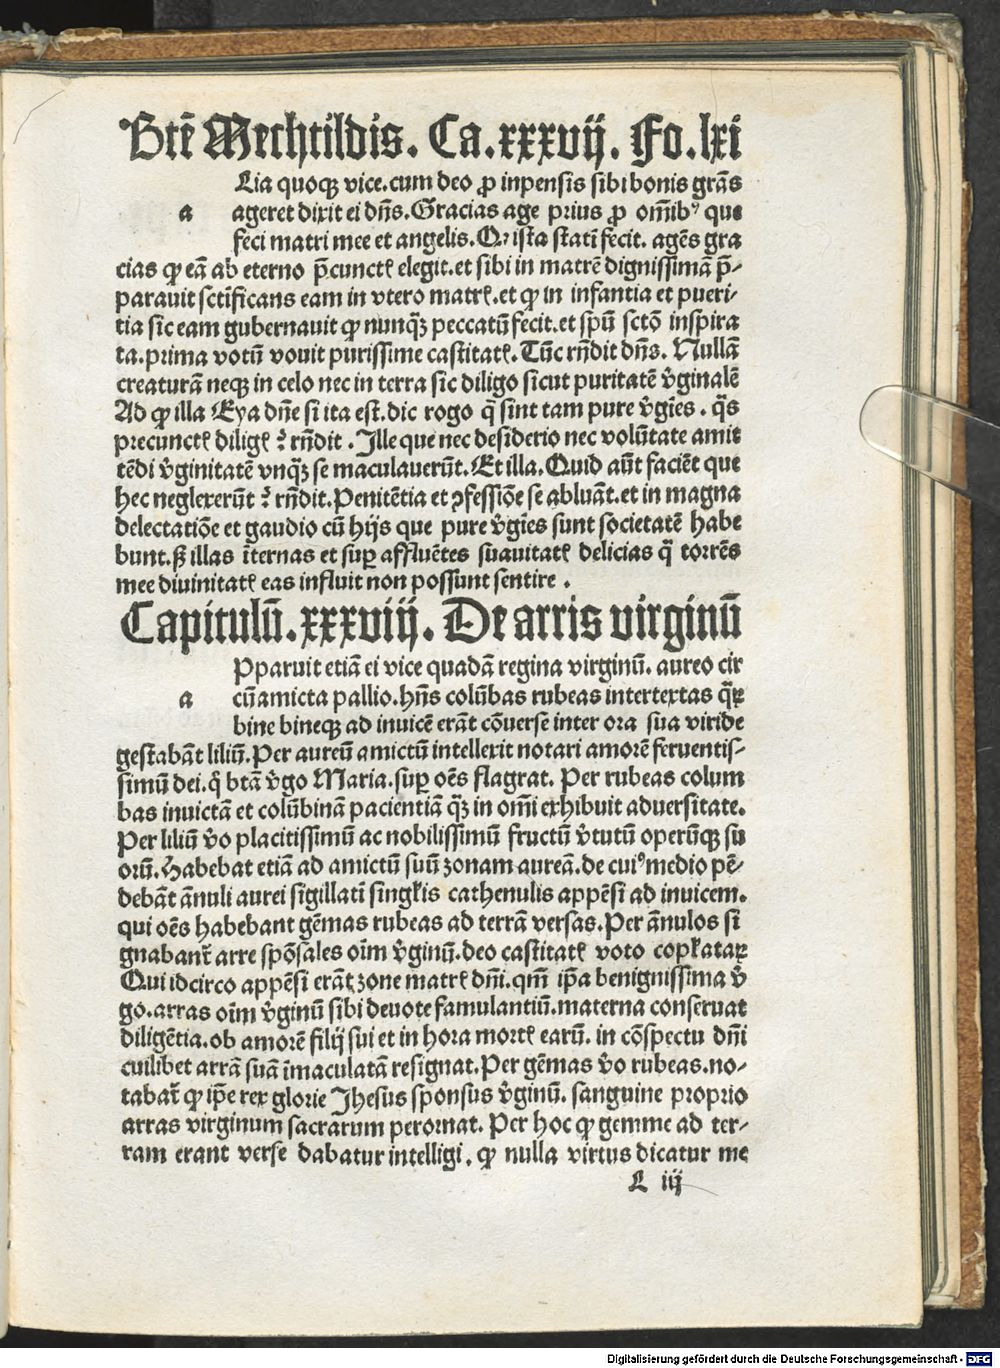 Btē Mechtildis. Ca. xxxvij. Fo. lxi
Lia quoqꝫ vice. cum deo ꝓ inpensis sibi bonis grās
a ageret dixit ei dn̄s. Gracias age prius ꝓ om̄ibꝰ que
feci matri mee et angelis. Q ista statī fecit. agēs gra
cias ꝙ eā ab eterno p̄cunctꝭ elegit. et sibi in matrē dignissimā p̄-
parauit sctīficans eam in vtero matrꝭ. et ꝙ in infantia et pueri-
tia sic eam gubernauit ꝙ nunqꝫ peccatū fecit. et spū sctō inspira
ta. prima votū vouit purissime castitatꝭ. Tūc rn̄dit dn̄s. Nullā
creaturā neqꝫ in celo nec in terra sic diligo sicut puritatē v̄ginalē
Ad ꝙ illa Eya dn̄e si ita est. dic rogo q̄ sint tam pure v̄gīes. q̄s
precunctꝭ diligꝭ ? rn̄dit. Ille que nec desiderio nec volūtate amit
tēdi v̄ginitatē vnqꝫ se maculauerūt. Et illa. Quid aūt faciēt que
hec neglexerūt ? rn̄dit. Penitētia et ꝯfessiōe se abluāt. et in magna
delectatiōe et gaudio cū hijs que pure v̄gīes sunt societatē habe
bunt. sꝫ illas īternas et suꝑ affluētes suauitatꝭ delicias q̄ torrēs
mee diuinitatꝭ eas influit non possunt sentire.
Capitulū. xxxviij. De arris virginū
Pparuit etiā ei vice quadā regina virginū. aureo cir
a cū amicta pallio. hn̄s colūbas rubeas intertextas q̄ꝝ
bine bineqꝫ ad inuicē erāt cōuerse inter ora sua viride
gestabāt liliū. Per aureū amictū intellexit notari amorē feruentis-
simū dei. q̄ btā v̄go Maria. suꝑ oēs flagrat. Per rubeas colum
bas inuictā et colūbinā pacientiā qꝫ in om̄i exhibuit aduersitate.
Per liliū v̄o placitissimū ac nobilissimū fructū v̄tutū operūqꝫ su
orū. Habebat etiā ad amictū suū zonam aureā. de cuiꝰ medio pē-
debāt ānuli aurei sigillatī singlis cathenulis appēsi ad inuicem.
qui oēs habebant gēmas rubeas ad terrā versas. Per ānulos si
gnabant̄ arre spōsales oīm v̄ginū. deo castitatꝭ voto coplataꝝ
Qui idcirco appēsi erāt zone matrꝭ dn̄i. qm̄ ip̄a benignissima v̄
go. arras oīm v̄ginū sibi deuote famulantiū. materna conseruat
diligētia. ob amorē filij sui et in hora mortꝭ earū. in cōspectu dn̄i
cuilibet arrā suā īmaculatā resignat. Per gēmas v̄o rubeas. no-
tabat̄ ꝙ ip̄e rex glorie Jhesus sponsus v̄ginū. sanguine proprio
arras virginum sacrarum perornat. Per hoc ꝙ gemme ad ter-
ram erant verse dabatur intelligi. ꝙ nulla virtus dicatur me
L iij
Digitalisierung gefördert durch die Deutsche Forschungsgemeinschaft - DFG